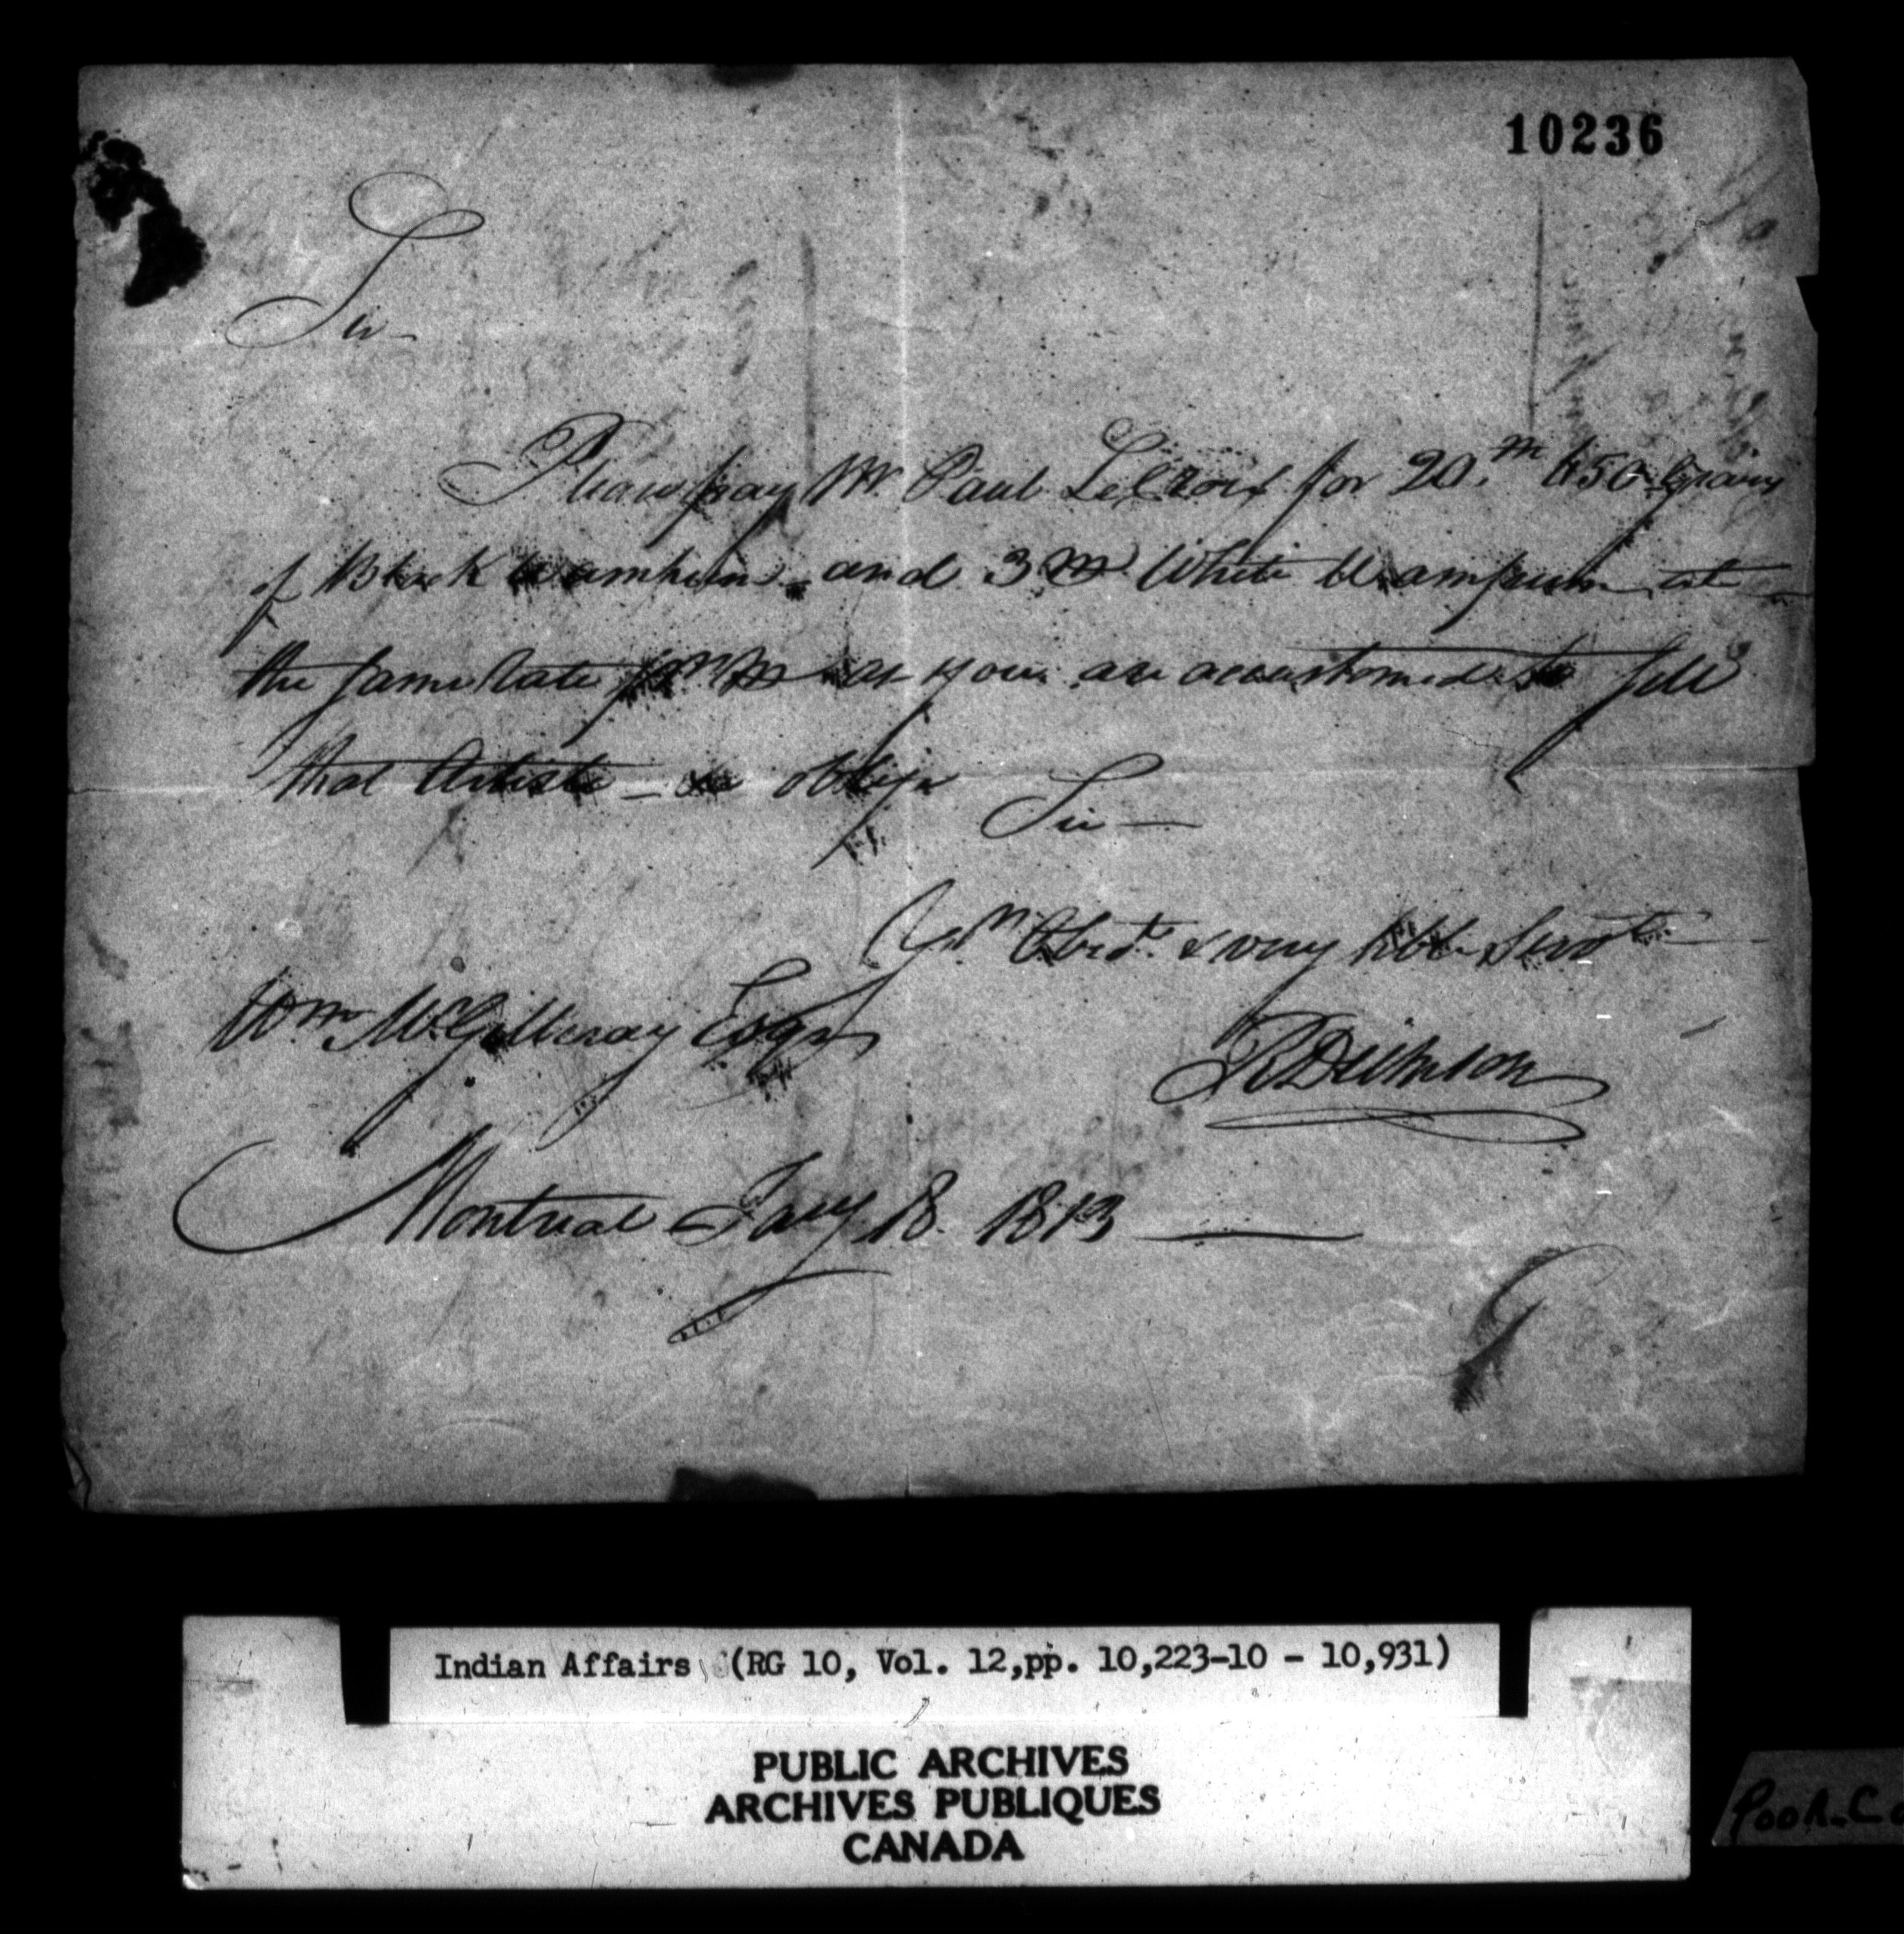 10236
Sir
Please pay Mr. Paul LaCroix for 20.m 650 Grains
of Black Wampum and 3 m White Wampum at
the same Rate pr m as you are accustomed to sell
that Article — & oblige
Sir —
Yr. Obedt. & very hble Servt
Wm McGillivray Esqr
RDickson
Montreal Jany 18. 1813
Indian Affairs (RG 10, Vol. 12,pp. 10,223-10 - 10,931)
PUBLIC ARCHIVES
ARCHIVES PUBLIQUES
CANADA
Poor